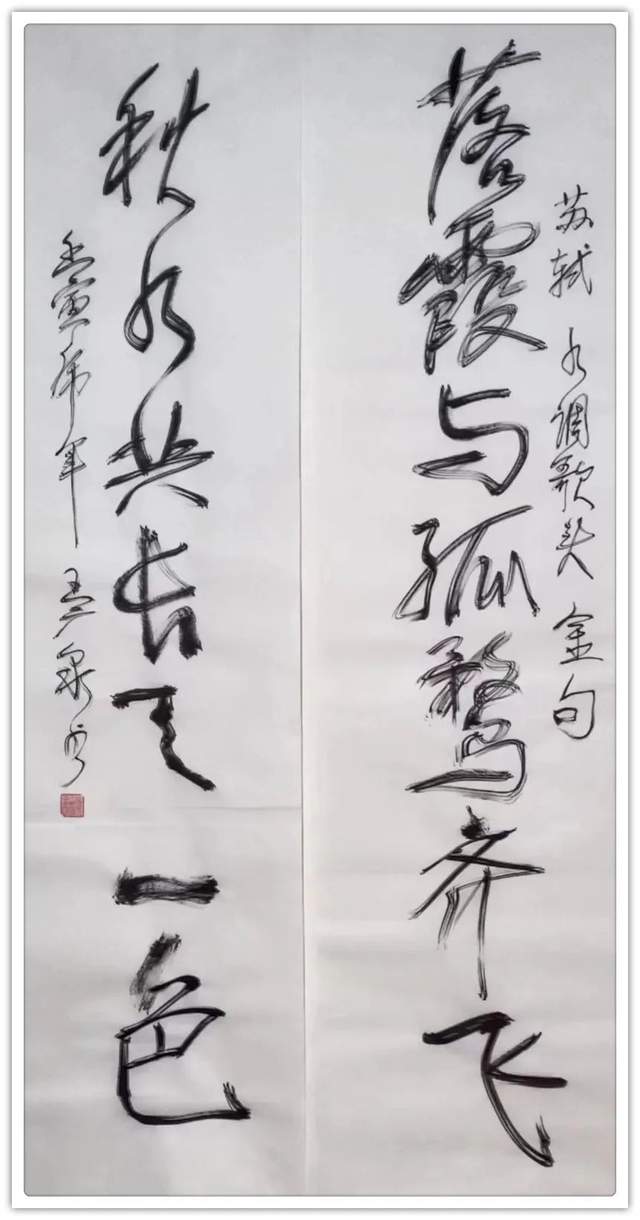 苏轼 水调歌头 金句
落霞与孤鹜齐飞
秋水共长天一色
壬寅虎年